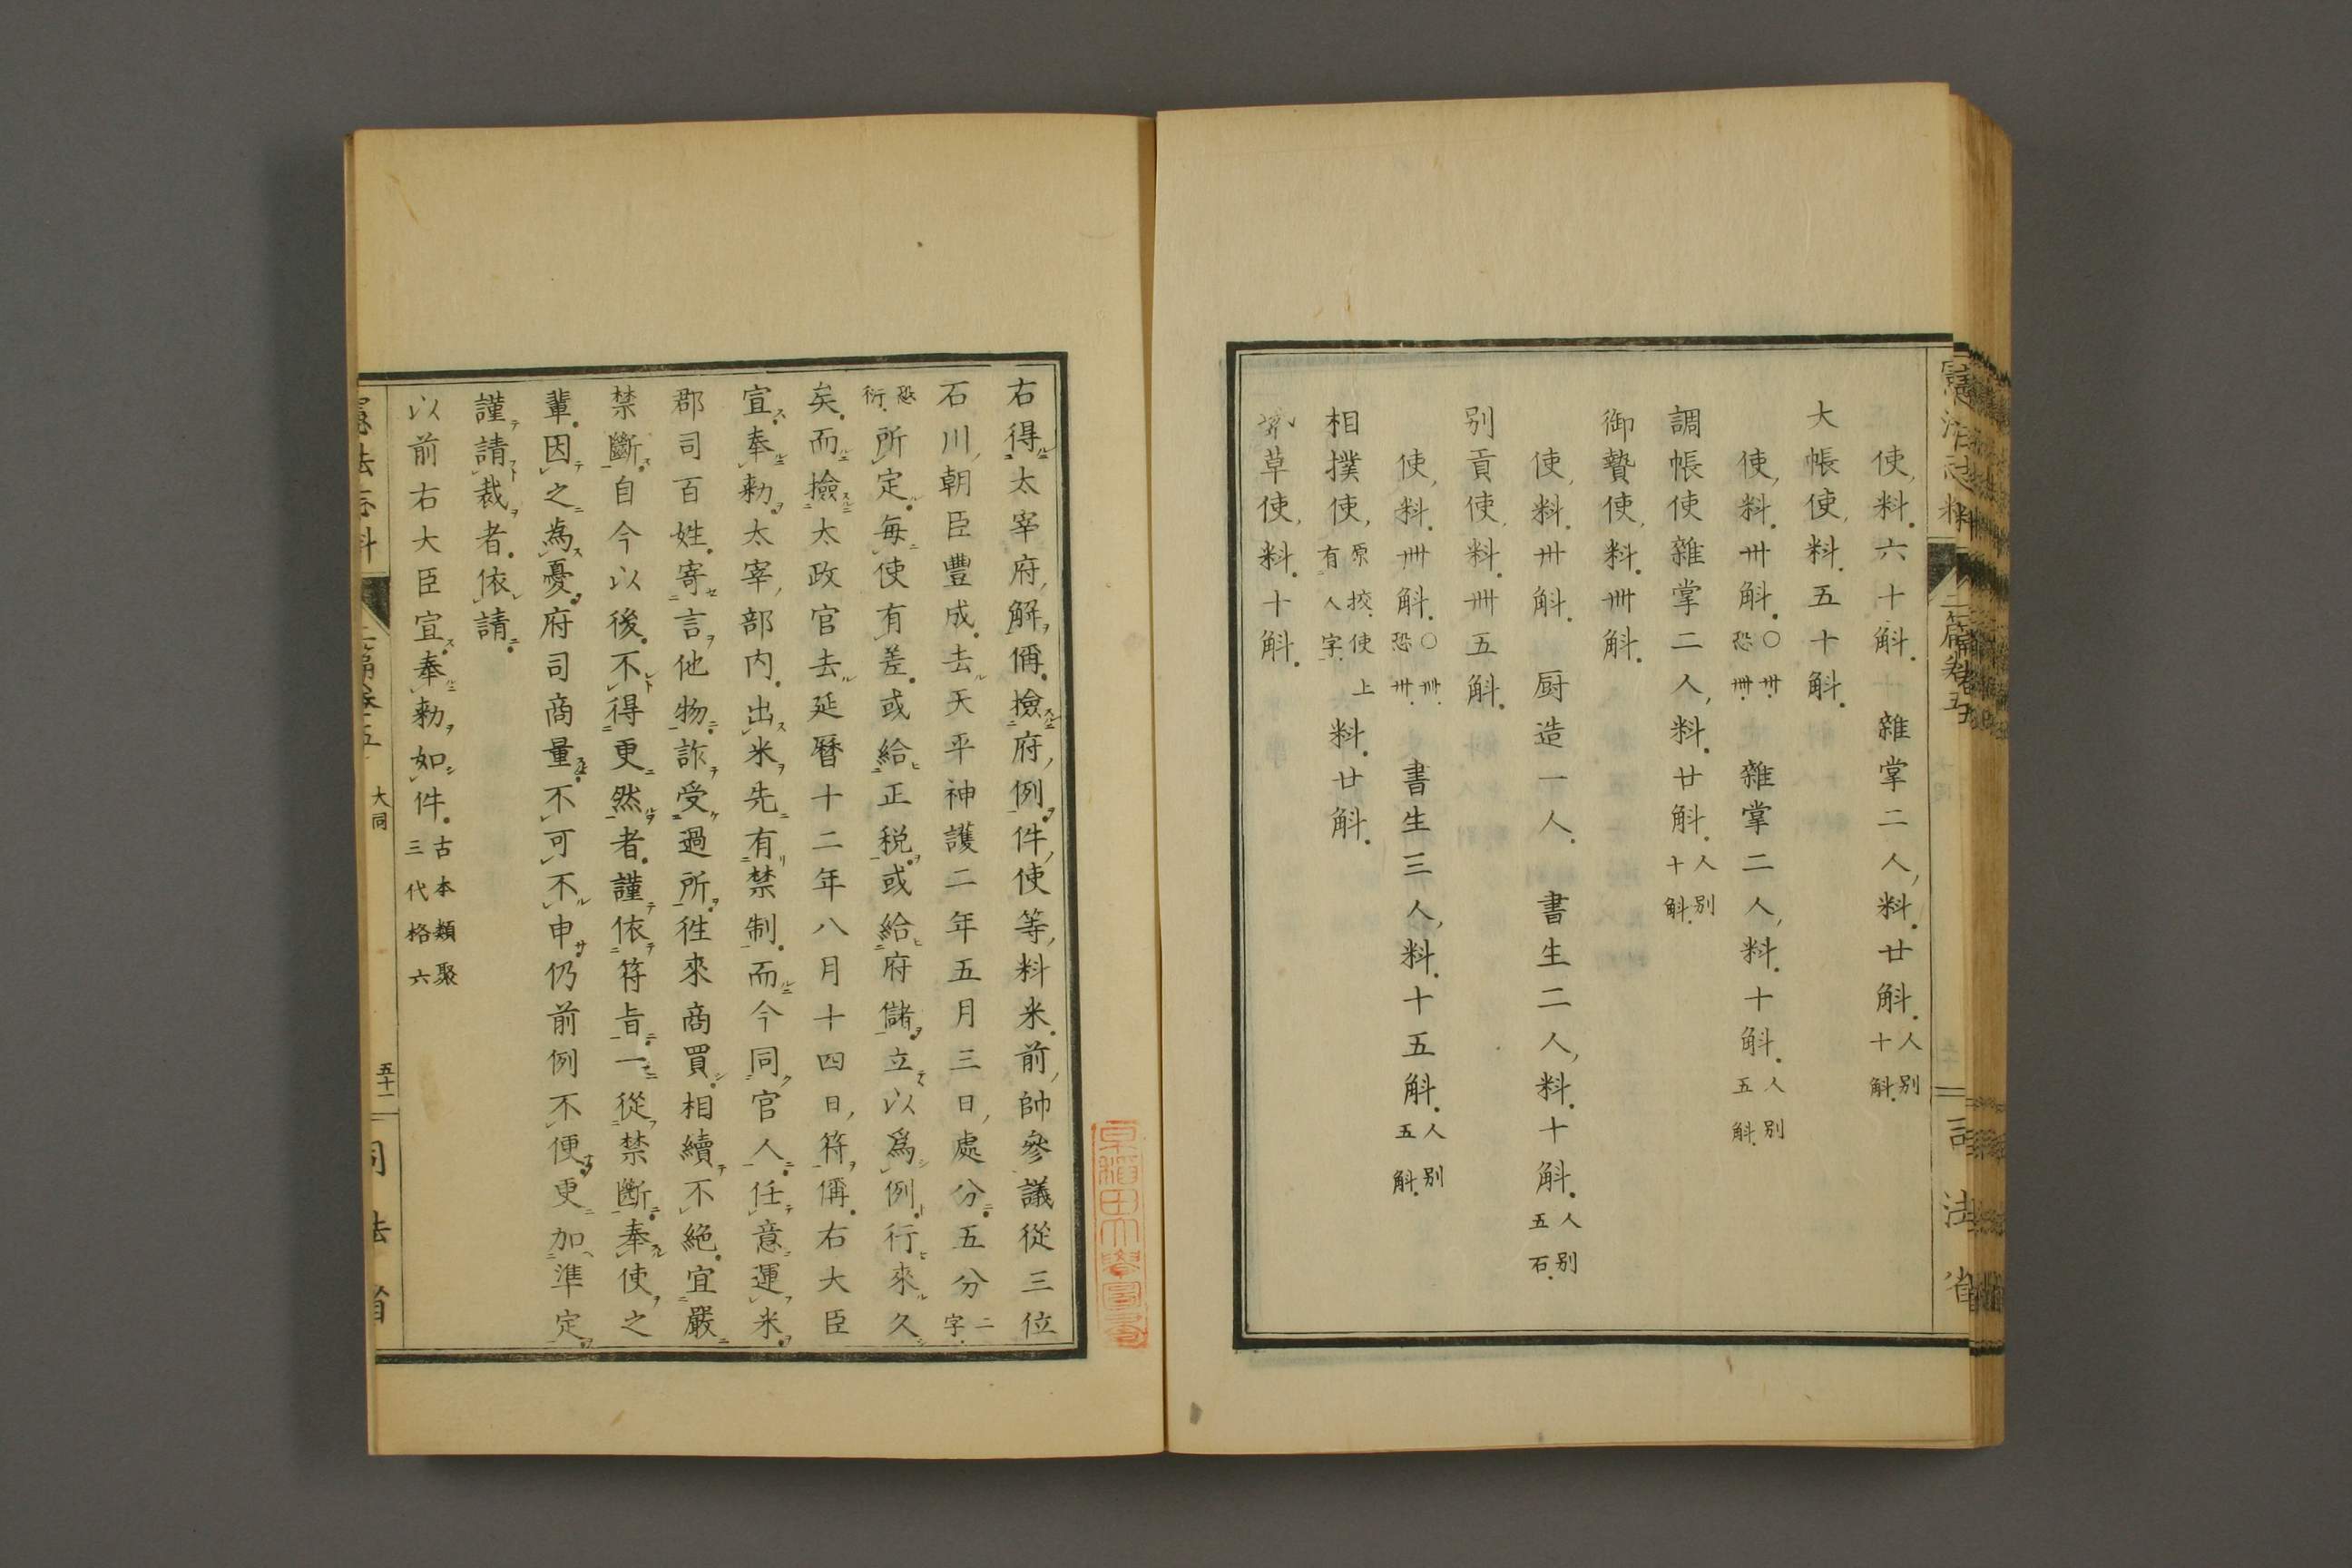 憲法志料
二篇卷五
司法省
使料六十斛 雜掌二人料廿斛人別十斛
大帳使料五十斛
使料卅斛○卅恐卌 雜掌二人料十斛人別五斛
調帳使雜掌二人料廿斛人別十斛
御贄使料卌斛
使料卅斛 厨造一人 書生二人料十斛人別五石
別貢使料卌五斛
使料卌斛○卌恐卅 書生三人料十五斛人別五斛
相撲使原挍使上有人字料廿斛
草使料十斛
右得太宰府解偁撿府例件使等料米前帥參議從三位
石川朝臣豐成去天平神護二年五月三日處分五分二字
恐衍所定每使有差或給正税或給府儲立以爲例行來久
矣而撿太政官去延曆十二年八月十四日符偁右大臣
宣奉勑太宰部内出米先有禁制而今同官人任意運米
郡司百姓寄言他物詐受過所往來商買相續不絕宜嚴
禁斷自今以後不得更然者謹依符旨一從禁斷奉使之
輩因之為憂府司商量不可不申仍前例不便更加準定
謹請裁者依請
以前右大臣宣奉勑如件古本類聚三代格六
憲法志料
二篇卷五
大同
五十二
司法省
早稻田大學圖書